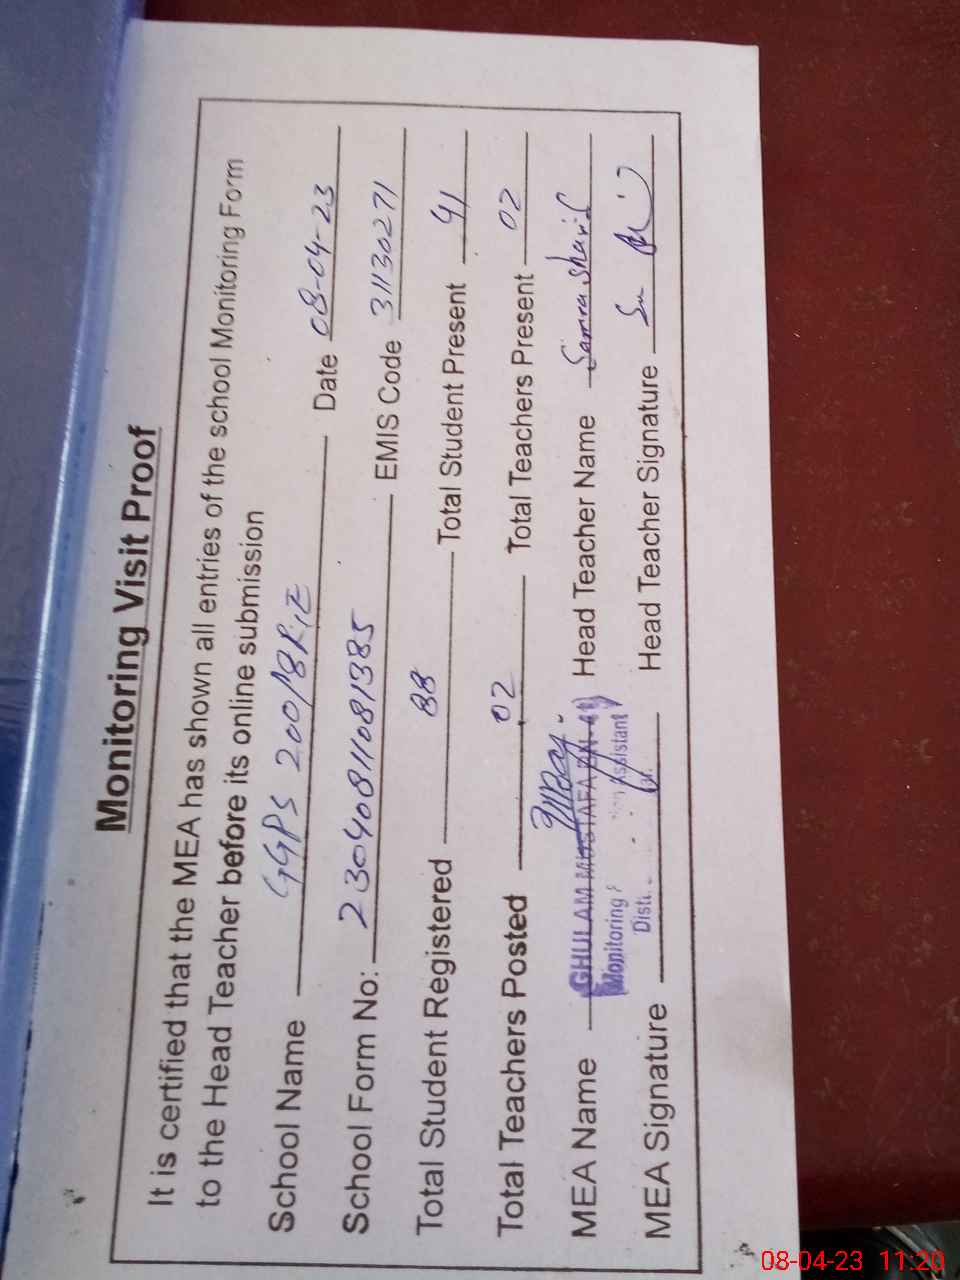 Monitoring Visit Proof
It is certified that the MEA has shown all entries of the school Monitoring Form
to the Head Teacher before its online submission
School Name GGPS 200/8R,E Date 08-04-23
School Form No: 23040811081385 EMIS Code 31130271
Total Student Registered 88 Total Student Present 41
Total Teachers Posted 02 Total Teachers Present 02
MEA Name GHULAM MUSTAFA Head Teacher Name Samra Sharif
Monitoring Assistant
Distt.
MEA Signature Head Teacher Signature
08-04-23 11:20